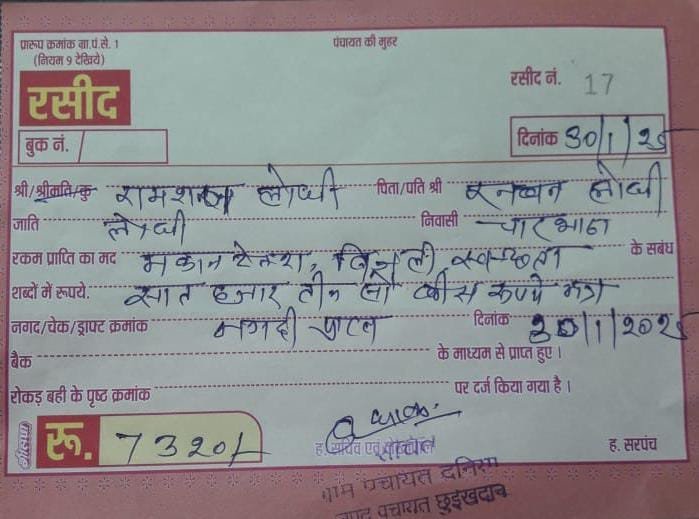 प्रारूप क्रमांक ग्रा.पं.से. 1
(नियम 9 देखिये)
पंचायत की मुहर
रसीद
रसीद नं. 17
बुक नं. /
दिनांक 30/1/25
श्री/श्रीमति/कु लोधी पिता/पति श्री लोधी
जाति लोधी निवासी चारभाठा
रकम प्राप्ति का मद मकान टेक्स, बिजली, स्वच्छता के सबंध
शब्दों में रूपये. सात हजार तीन सौ बीस रूपये मात्र
नगद/चेक/ड्राफ्ट क्रमांक नगदी दिनांक 30/1/2025
बैक के माध्यम से प्राप्त हुए ।
रोकड़ बही के पृष्ठ क्रमांक पर दर्ज किया गया है ।
रू. 7320/-
ह. सचिव एवं ह. सरपंच
ग्राम पंचायत
जनपद पंचायत छुईखदान